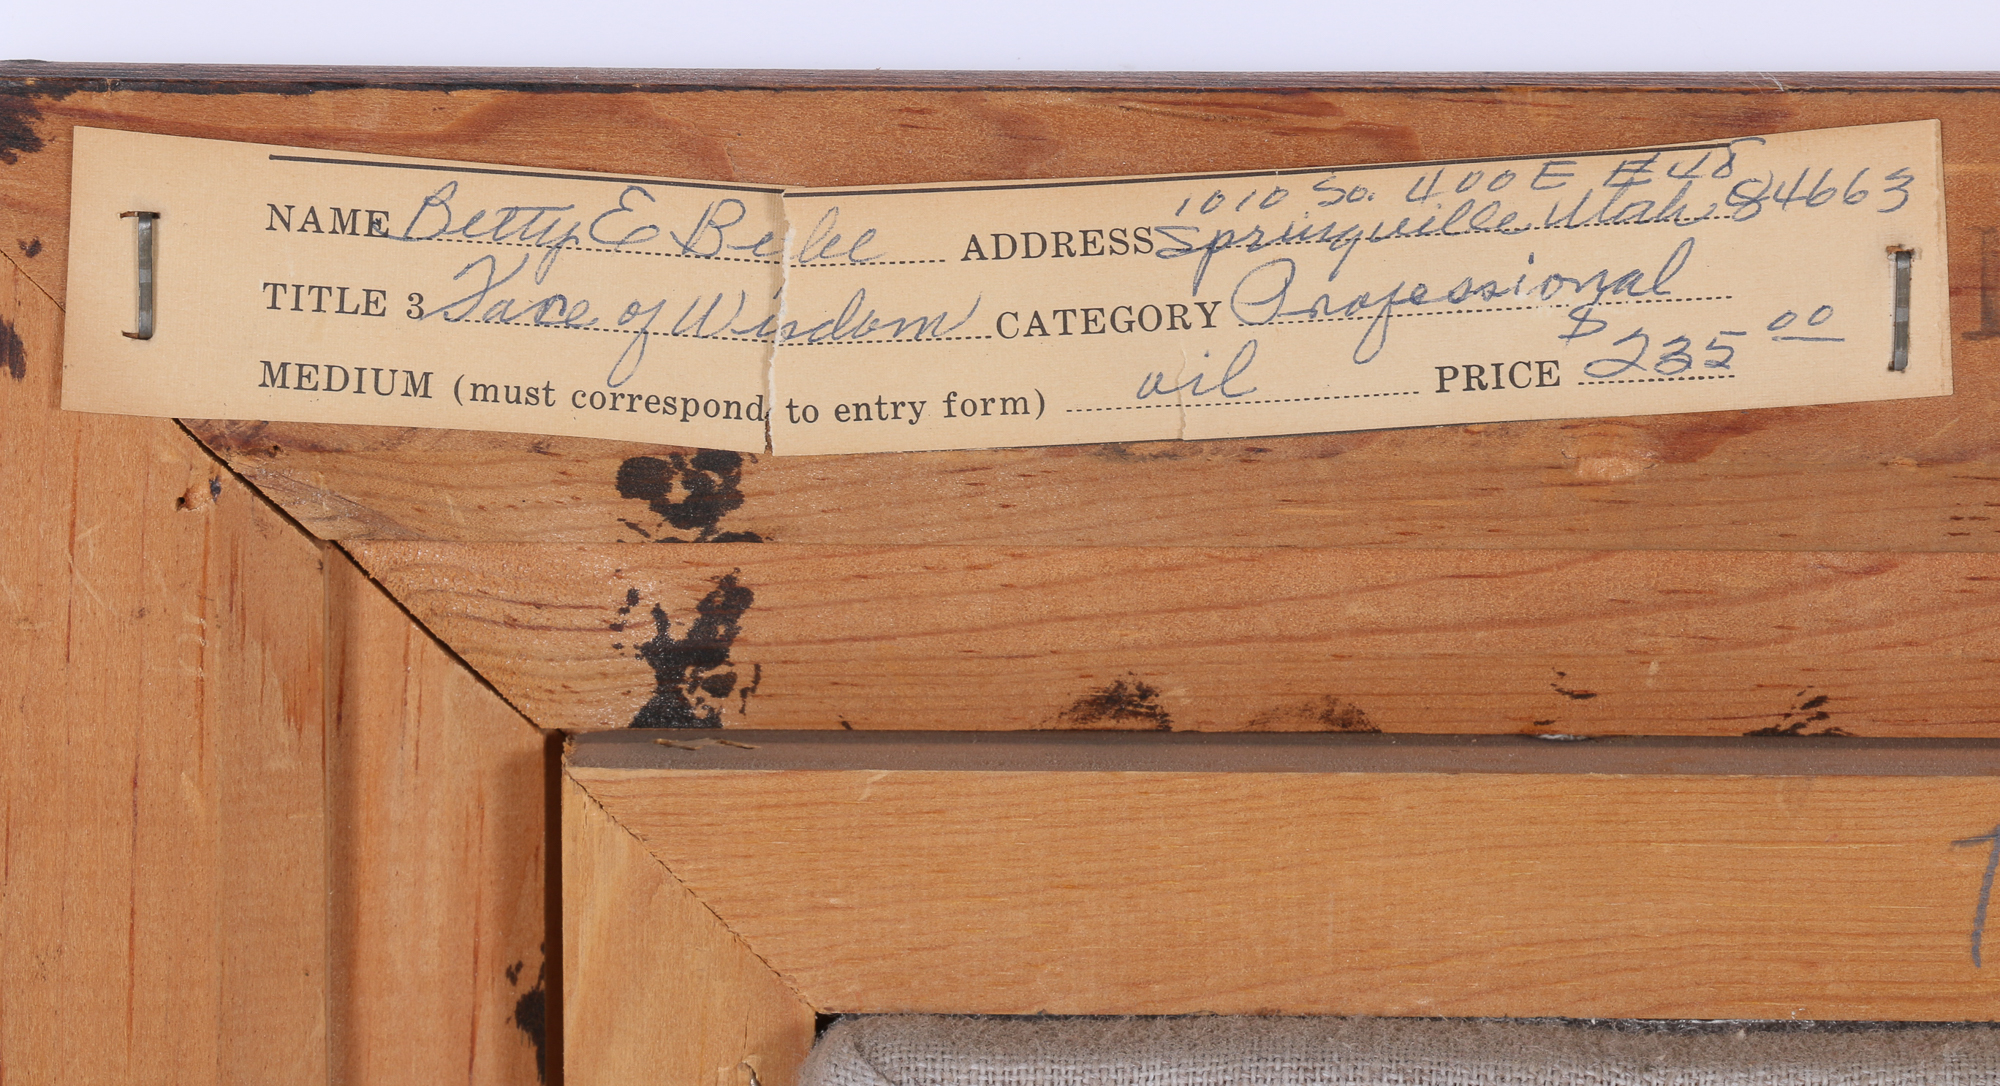 1010 So. 400 E #48
NAME Betty E Bebee ADDRESS Springville Utah, 84663
TITLE 3 Face of Wisdom CATEGORY Professional
MEDIUM (must correspond to entry form) oil PRICE $235 00